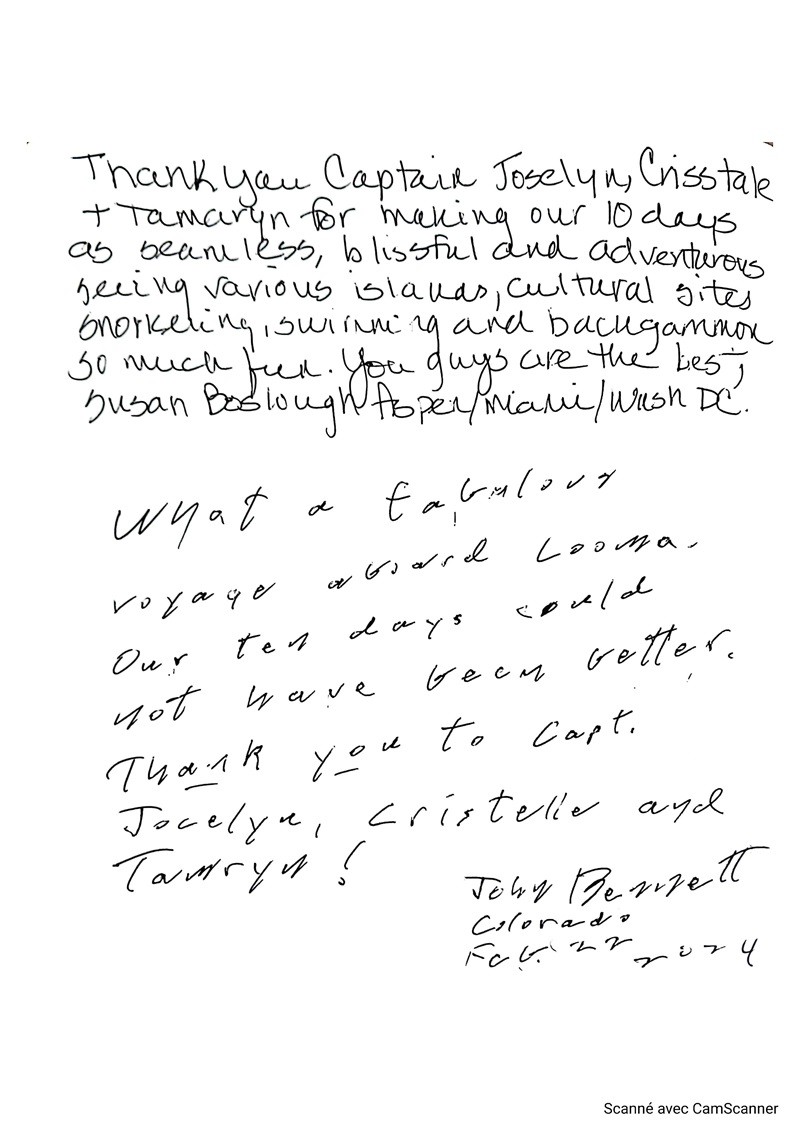 Thank you Captain Joselyn, Crisstale
+ Tamaryn for making our 10 days
as seamless, blissful and adventurous
seeing various islands, cultural sites
snorkeling, swimming and backgammon
so much fun. You guys are the best,
Susan Boslough Aspen/Miami/Wash DC.
What a fabulous
voyage aboard Looma.
Our ten days could
not have been better.
Thank you to Capt.
Jocelyn, Cristelle and
Tamryn!
John Bennett
Colorado
Feb. 22 2024
Scanné avec CamScanner